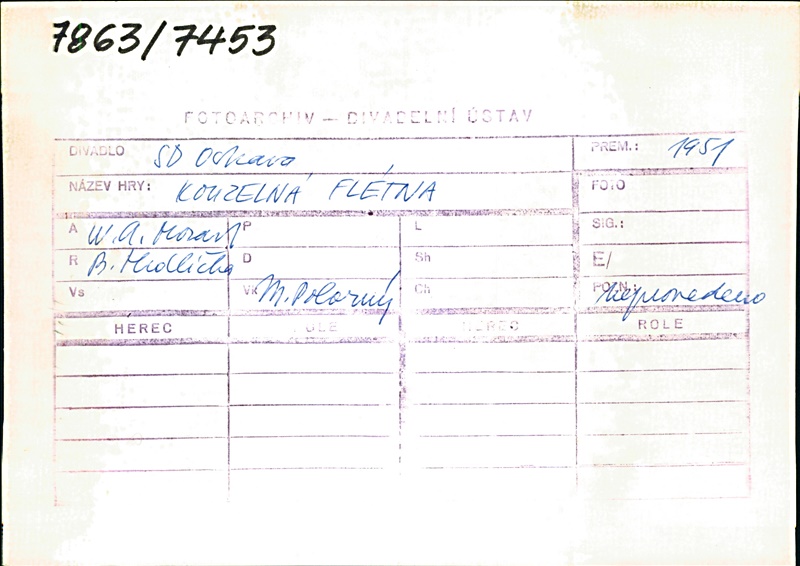 7863/7453
FOTOARCHIV – DIVADELNÍ ÚSTAV
DIVADLO SD Ostrava PREM.: 1951
NÁZEV HRY: KOUZELNÁ FLÉTNA FOTO
A W. A. Mozart P L SIG.:
R B. Hrdlička D Sh E/
Vs Vk M. Polorný Ch POZN.: neprovedeno
HEREC ROLE HEREC ROLE